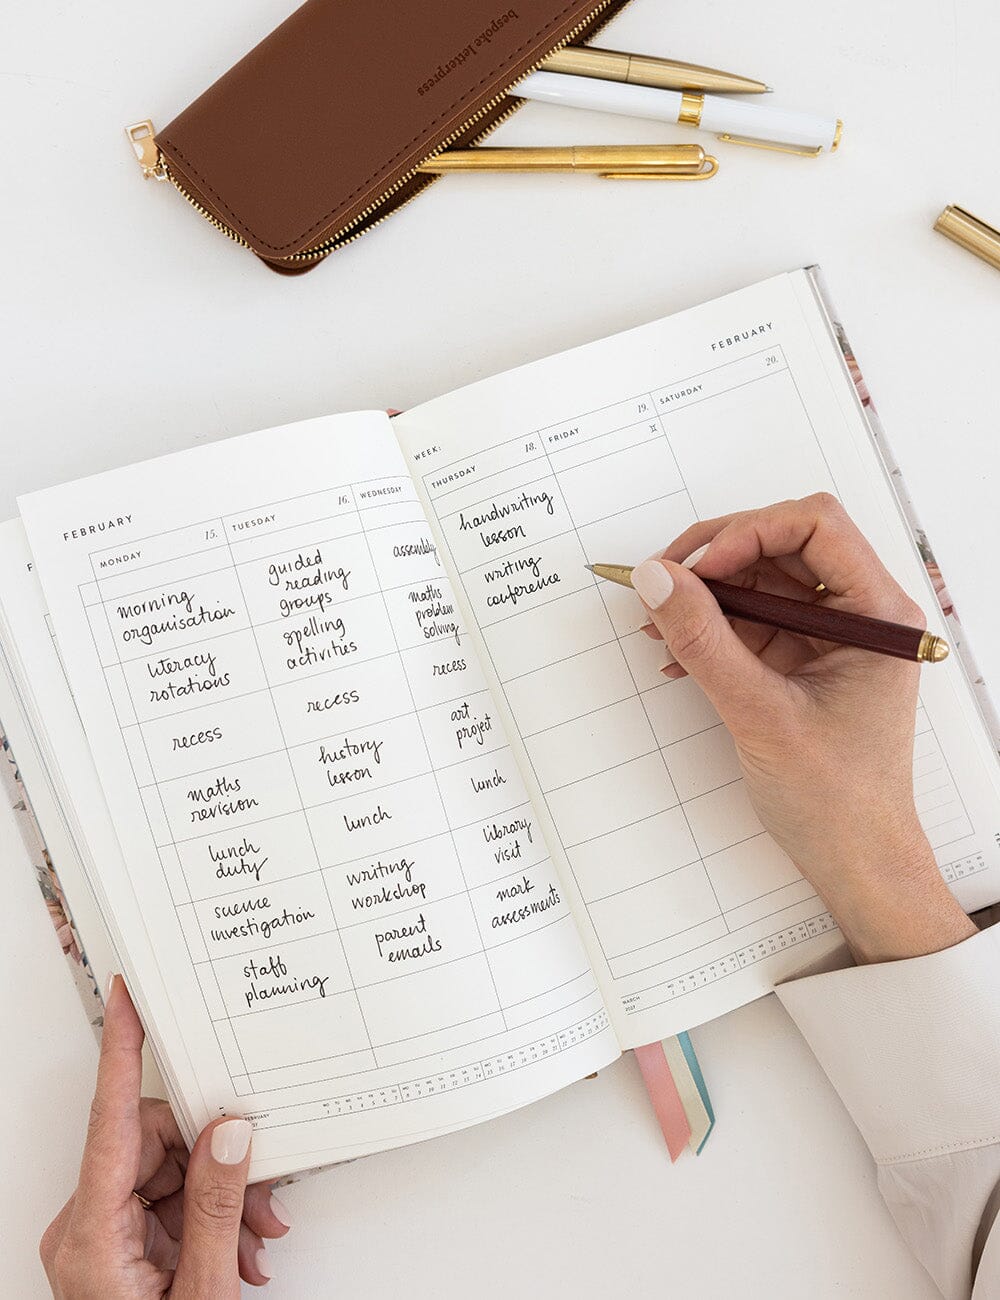 bespoke letterpress
FEBRUARY
MONDAY
15.
morning
organisation
literacy
rotations
recess
maths
revision
lunch
duty
science
investigation
staff
planning
TUESDAY
16.
guided
reading
groups
spelling
activities
recess
history
lesson
lunch
writing
workshop
parent
emails
WEDNESDAY
assembly
maths
problem
solving
recess
art
project
lunch
library
visit
mark
assessments
FEBRUARY
WEEK:
THURSDAY
18.
handwriting
lesson
writing
conference
FRIDAY
19.
SATURDAY
20.
FEBRUARY
MARCH
2027